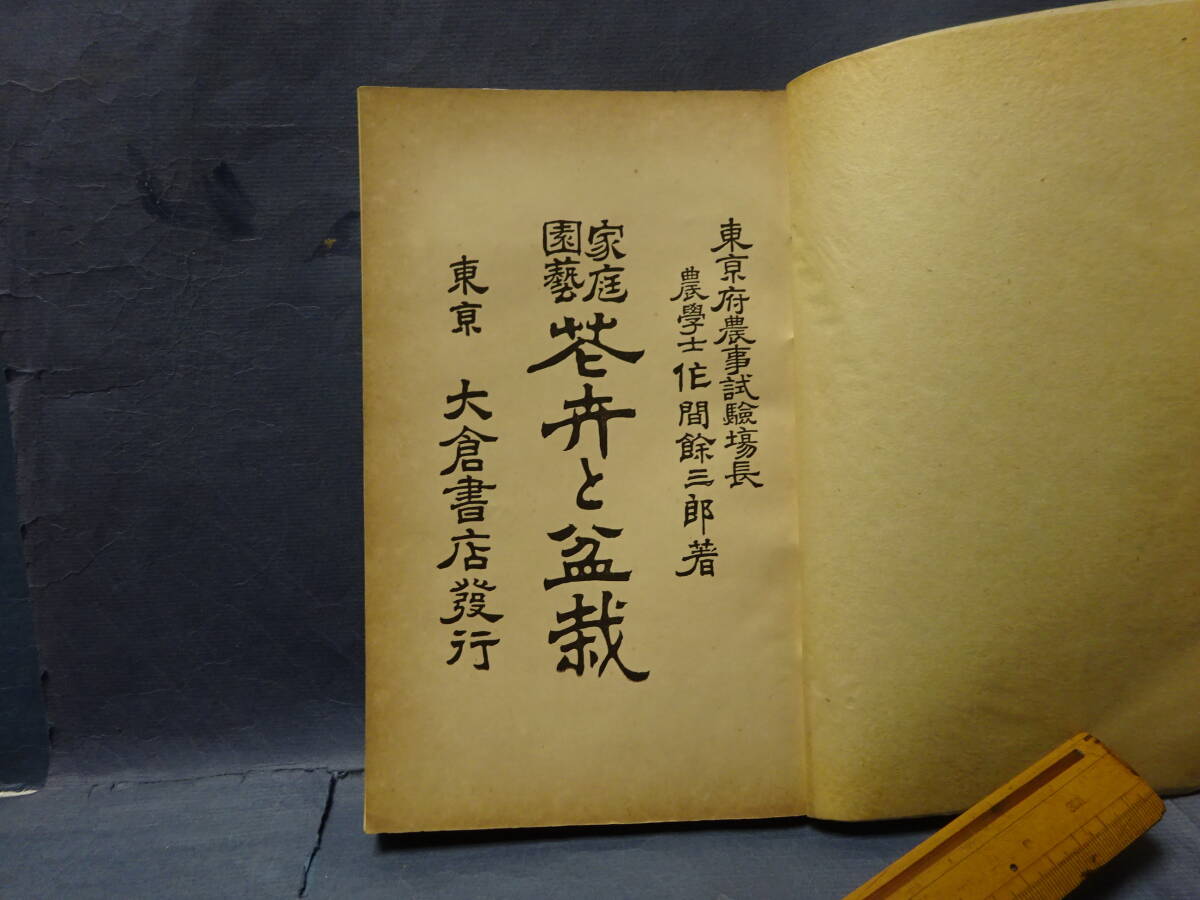 東京府農事試驗場長
農學士 佐間餘三郎著
家庭
園藝
花卉と盆栽
東京 大倉書店發行